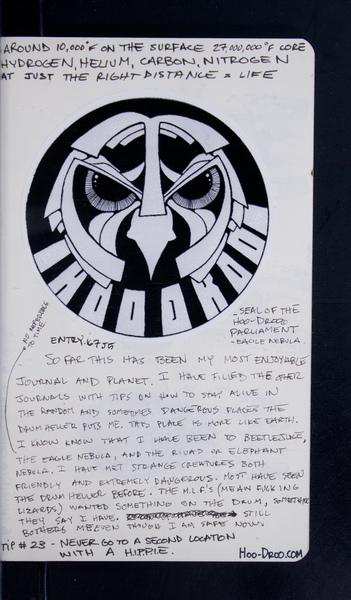 AROUND 10,000°F ON THE SURFACE 27,000,000°F CORE
HYDROGEN, HELIUM, CARBON, NITROGEN
AT JUST THE RIGHT DISTANCE = LIFE
HOODROO
- SEAL OF THE
HOO-DROO
PARLIAMENT
- EAGLE NEBULA.
NO REFERENCE
TO TIME.
ENTRY: 67JG
SO FAR THIS HAS BEEN MY MOST ENJOYABLE
JOURNAL AND PLANET. I HAVE FILLED THE OTHER
JOURNALS WITH TIPS ON HOW TO STAY ALIVE IN
THE RANDOM AND SOMETIMES DANGEROUS PLACES THE
DRUM HELLER PUTS ME. THIS PLACE IS MORE LIKE EARTH.
I KNOW KNOW THAT I HAVE BEEN TO BEETLEJUICE,
THE EAGLE NEBULA, AND THE OR ELEPHANT
NEBULA. I HAVE MET STRANGE CREATURES BOTH
FRIENDLY AND EXTREMELY DANGEROUS. MOST HAVE SEEN
THE DRUM HELLER BEFORE. THE M.L.F.'S (MEAN FUCKING
LIZARDS) WANTED SOMETHING ON THE DRUM, SOMETHING
THEY SAY I HAVE. STILL
BOTHERS ME EVEN THOUGH I AM SAFE NOW.
TIP # 23 - NEVER GO TO A SECOND LOCATION
WITH A H.I.P.P.I.E.
HOO-DROO.COM